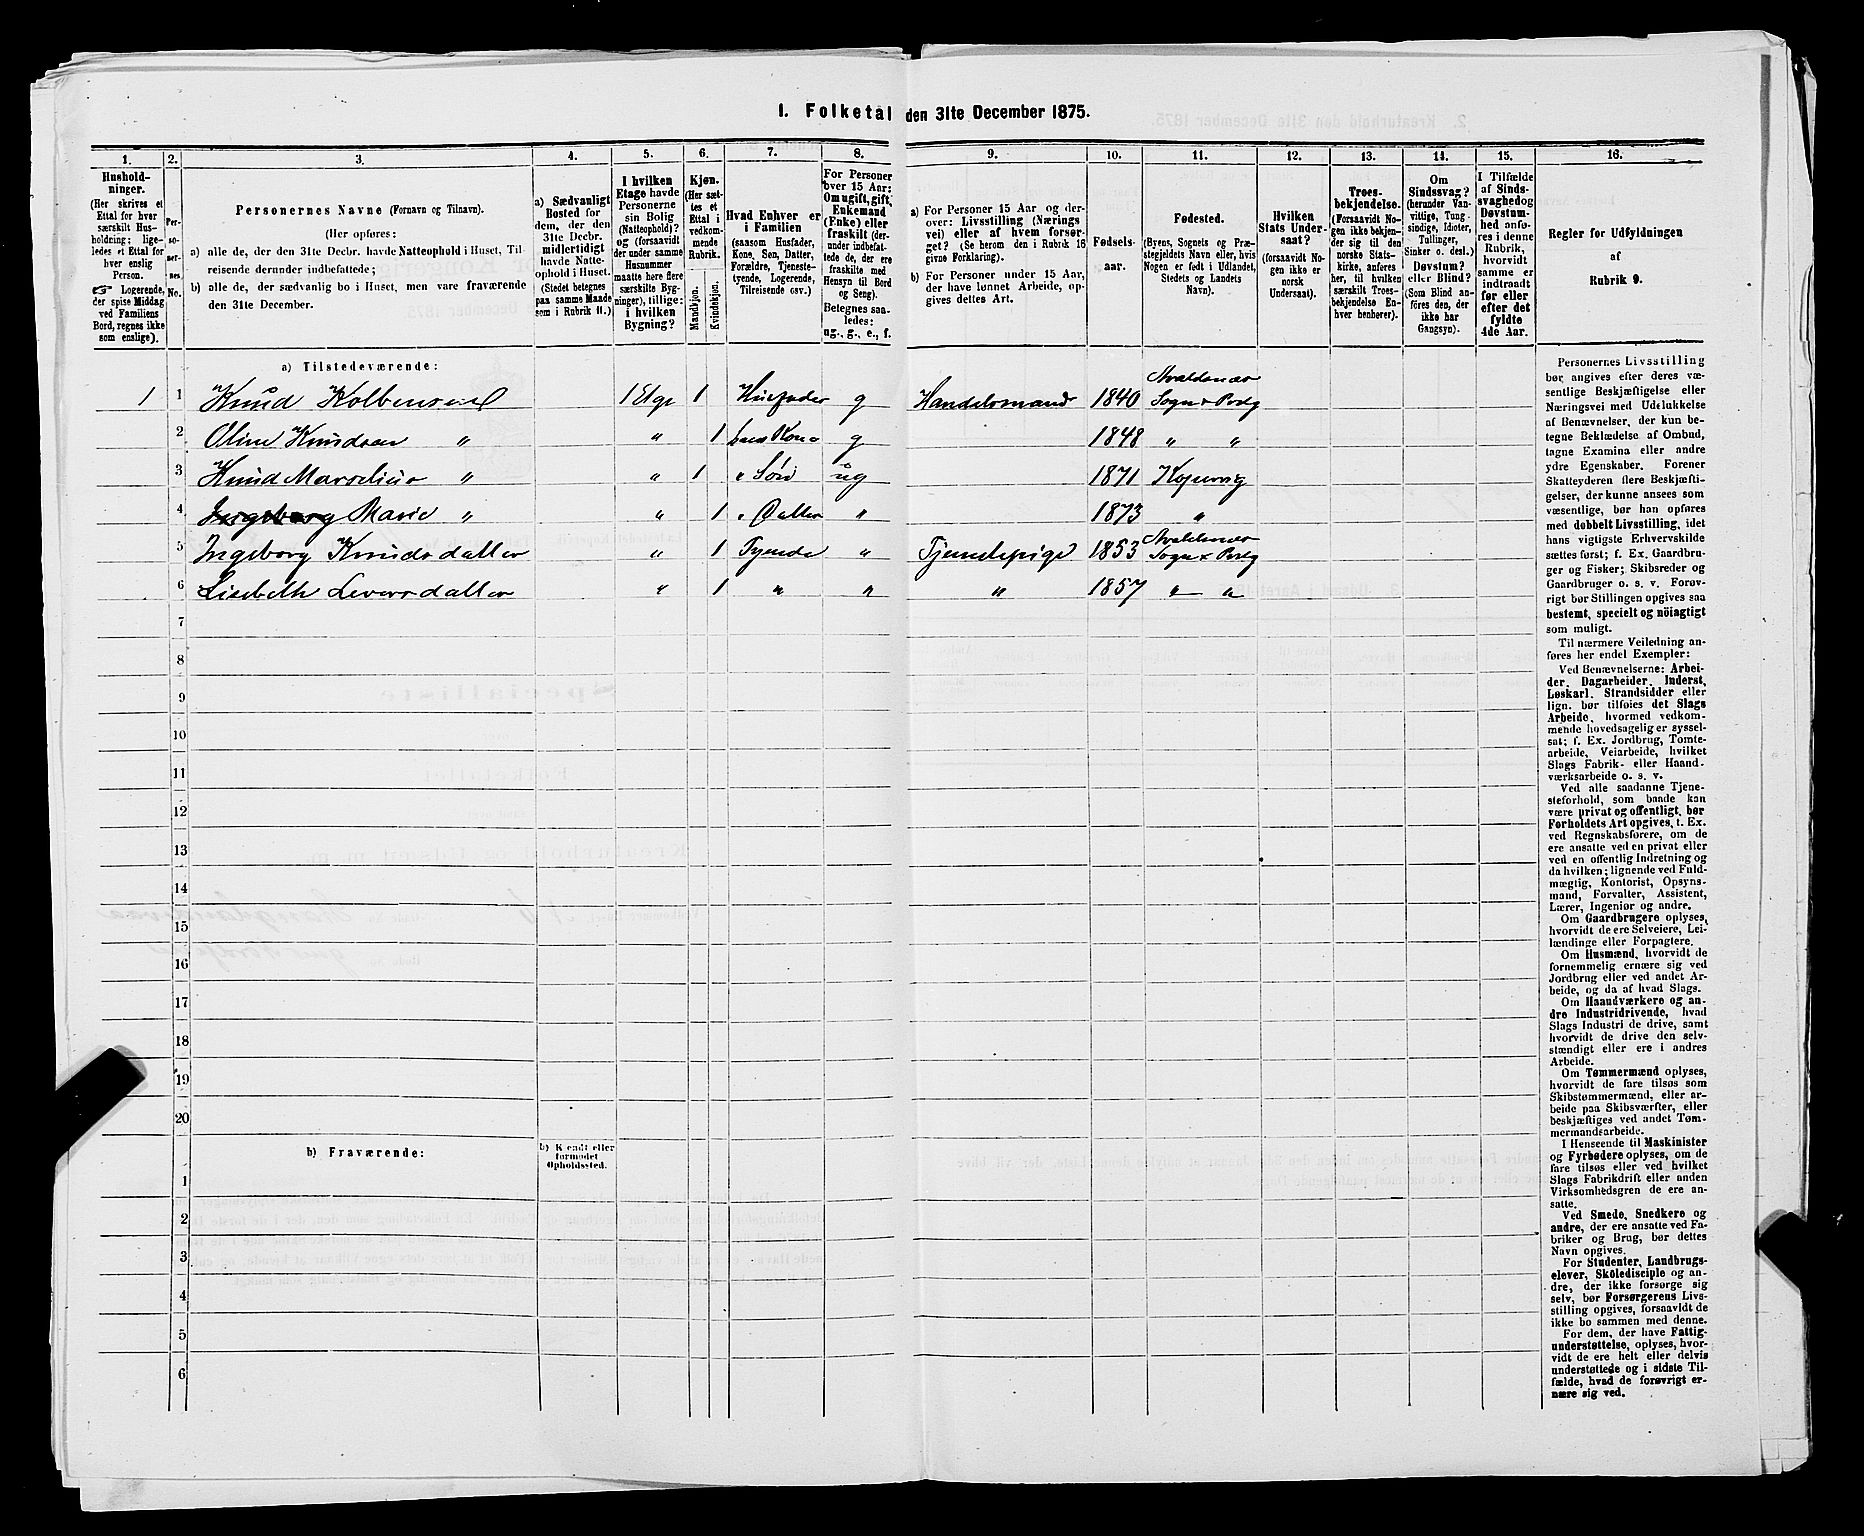 I. Folketal den 31te December 1875.
1. 2. 3. 4. 5. 6. 7. 8. 9. 10. 11. 12. 13. 14. 15. 16.
Hushold-
ninger.
(Her skrives et
Ettal for hver
særskilt Hus-
holdning; lige-
ledes et Ettal for
hver enslig
Person.
☞ Logerende,
der spise Middag
ved Familiens
Bord, regnes ikke
som enslige).
Per-
so-
ner-
nes
No.
Personernes Navne (Fornavn og Tilnavn).
(Her opføres:
a) alle de, der den 31te Decbr. havde Natteophold i Huset, Til-
reisende derunder indbefattede;
b) alle de, der sædvanlig bo i Huset, men vare fraværende
den 31te December.
a) Sædvanligt
Bosted for
dem, der den
31te Decbr.
midlertidigt
havde Natte-
ophold i Huset.
(Stedet betegnes
paa samme Maade
som i Rubrik 11.)
I hvilken
Etage havde
Personerne
sin Bolig
(Natteophold)?
og (forsaavidt
der under samme
Husnummer
maatte høre flere
særskilte Byg-
ninger), tillige:
i hvilken
Bygning?
Kjøn.
(Her sæt-
tes et
Ettal i
vedkom-
mende
Rubrik.
Mandkjøn.
Kvindekjøn.
Hvad Enhver er
i Familien
(saasom Husfader,
Kone, Søn, Datter,
Forældre, Tjeneste-
tyende, Logerende,
Tilreisende osv.)
For Personer
over 15 Aar:
Om ugift, gift,
Enkemand
(Enke) eller
fraskilt (der-
under indbefat-
tede de, der ere
fraskilte med
Hensyn til Bord
og Seng).
Betegnes saa-
ledes:
ug., g., e., f.
a) For Personer 15 Aar og der-
over: Livsstilling (Nærings-
vei) eller af hvem forsør-
get? (Se herom den i Rubrik 16
givne Forklaring).
b) For Personer under 15 Aar,
der have lønnet Arbeide, op-
gives dettes Art.
Fødsels-
aar.
Fødested.
(Byens, Sognets og Præ-
stegjeldets Navn eller, hvis
Nogen er født i Udlandet,
Stedets og Landets
Navn).
Hvilken
Stats Under-
saat?
(forsaavidt No-
gen ikke er
norsk
Undersaat).
Troes-
bekjendelse.
(Forsaavidt No-
gen ikke bekjen-
der sig til den
norske Stats-
kirke, anføres
her, til hvilken
særskilt Troes-
bekjendelse En-
hver henhører).
Om
Sindssvag?
(herunder Van-
vittige, Tung-
sindige, Idioter,
Tullinger,
Sinker o. desl.)
Døvstum?
eller Blind?
(Som Blind an-
føres den, der
ikke har
Gangsyn).
I Tilfælde
af Sinds-
svaghed og
Døvstum-
hed anfø-
res i denne
Rubrik,
hvorvidt
samme er
indtraadt
før eller
efter det
fyldte
4de Aar.
Regler for Udfyldningen
af
Rubrik 9.
a) Tilstedeværende:
1 1 Knud Kolbensen 1 Etge 1 Husfader g Handelsmand 1840 Avaldsnæs Sogn & Prstg
2 Oline Knudsen " " 1 hans Kone g 1848 " "
3 Knud Marselius " " 1 " Søn ug 1871 Kopervig
4 Ingeborg Marie " " 1 " Datter " 1873 "
5 Ingeborg Knudsdatter " 1 Tyende " Tjenestepige 1853 Avaldsnæs Sogn & Prstg
6 Lisebeth Leversdatter " 1 " " " 1857 " "
7
8
9
10
11
12
13
14
15
16
17
18
19
20
b) Fraværende:
b) Kjendt eller
formodet
Opholdssted.
1
2
3
4
5
6
Personernes Livsstilling
bør angives efter deres væ-
sentlige Beskjæftigelse eller
Næringsvei med Udelukkelse
af Benævnelser, der kun be-
tegne Beklædelse af Ombud,
tagne Examina eller andre
ydre Egenskaber. Forener
Skatteyderen flere Beskjæfti-
gelser, der kunne ansees som
væsentlige, bør han opføres
med dobbelt Livsstilling, idet
hans vigtigste Erhvervskilde
sættes først; f. Ex. Gaardbru-
ger og Fisker; Skibsreder og
Gaardbruger o. s. v. Forøv-
rigt bør Stillingen opgives saa
bestemt, specielt og nöiagtigt
som muligt.
Til nærmere Veiledning an-
føres her endel Exempler:
Ved Benævnelserne: Arbei-
der, Dagarbeider, Inderst,
Løskarl, Strandsidder eller
lign. bør tilføies det Slags
Arbeide, hvormed vedkom-
mende hovedsagelig er syssel-
sat; f. Ex. Jordbrug, Tomte-
arbeide, Veiarbeide, hvilket
Slags Fabrik- eller Haand-
værksarbeide o. s. v.
Ved alle saadanne Tjene-
steforhold, som baade kan
være privat og offentligt, bør
Forholdets Art opgives, t. Ex.
ved Regnskabsførere, om de
ere ansatte ved en privat eller
ved en offentlig Indretning og
da hvilken; lignende ved Fuld-
mægtig, Kontorist, Opsyns-
mand, Forvalter, Assistent,
Lærer, Ingeniør og andre.
Om Gaardbrugere oplyses,
hvorvidt de ere Selveiere, Lei-
lændinge eller Forpagtere.
Om Husmænd, hvorvidt de
fornemmelig ernære sig ved
Jordbrug eller ved andet Ar-
beide, og da af hvad Slags.
Om Haandværkere og an-
dre Industridrivende, hvad
Slags Industri de drive, samt
hvorvidt de drive den selv-
stændigt eller ere i andres
Arbeide.
Om Tømmermænd oplyses,
hvorvidt de fare tilsøs som
Skibstømmermænd, eller ar-
beide paa Skibsværfter, eller
beskjæftiges ved andet Tøm-
mermandsarbeide.
I Henseende til Maskinister
og Fyrbødere oplyses, om de
fare tilsøs eller ved hvilket
Slags Fabrikdrift eller anden
Virksomhedsgren de ere an-
satte.
Ved Smede, Snedkere og
andre, der ere ansatte ved Fa-
briker og Brug, bør dettes
Navn opgives.
For Studenter, Landbrugs-
elever, Skoledisciple og an-
dre, der ikke forsørge sig
selv, bør Forsørgerens Livs-
stilling opgives, forsaavidt de
ikke bo sammen med denne.
For dem, der have Fattig-
understøttelse, oplyses, hvor-
vidt de ere helt eller delvis
understøttede og i sidste Til-
fælde, hvad de forøvrigt er-
nære sig ved.